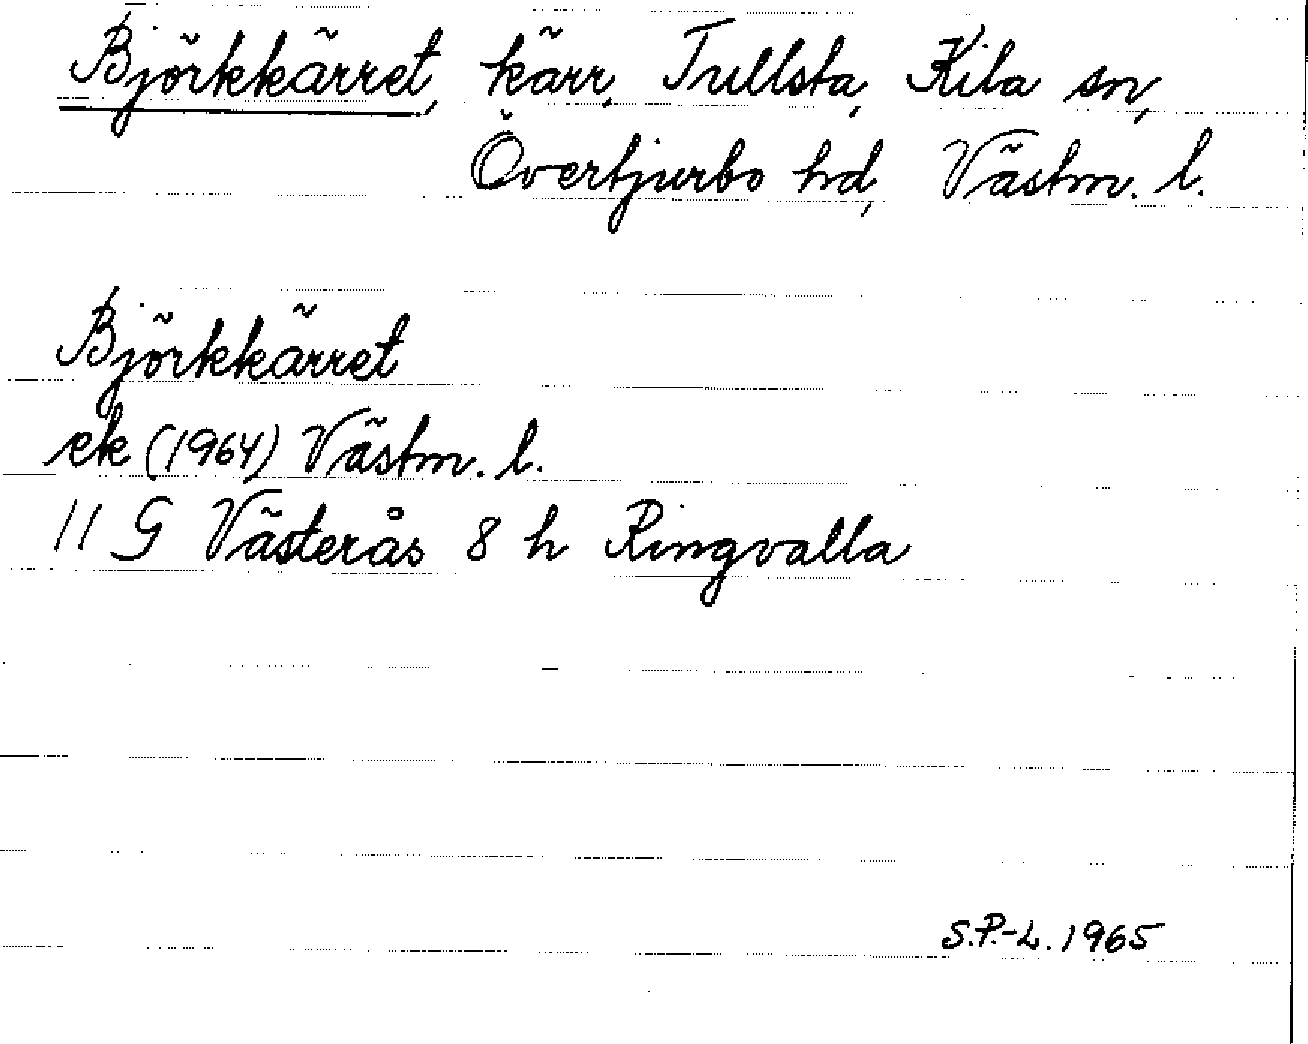 Björkkärret, kärr, Tullsta, Kila sn,
Övertjurbo hd, Västm. l.
Björkkärret
ek (1964) Västm. l.
11 G Västerås 8 h Ringvalla
S.P.-L. 1965